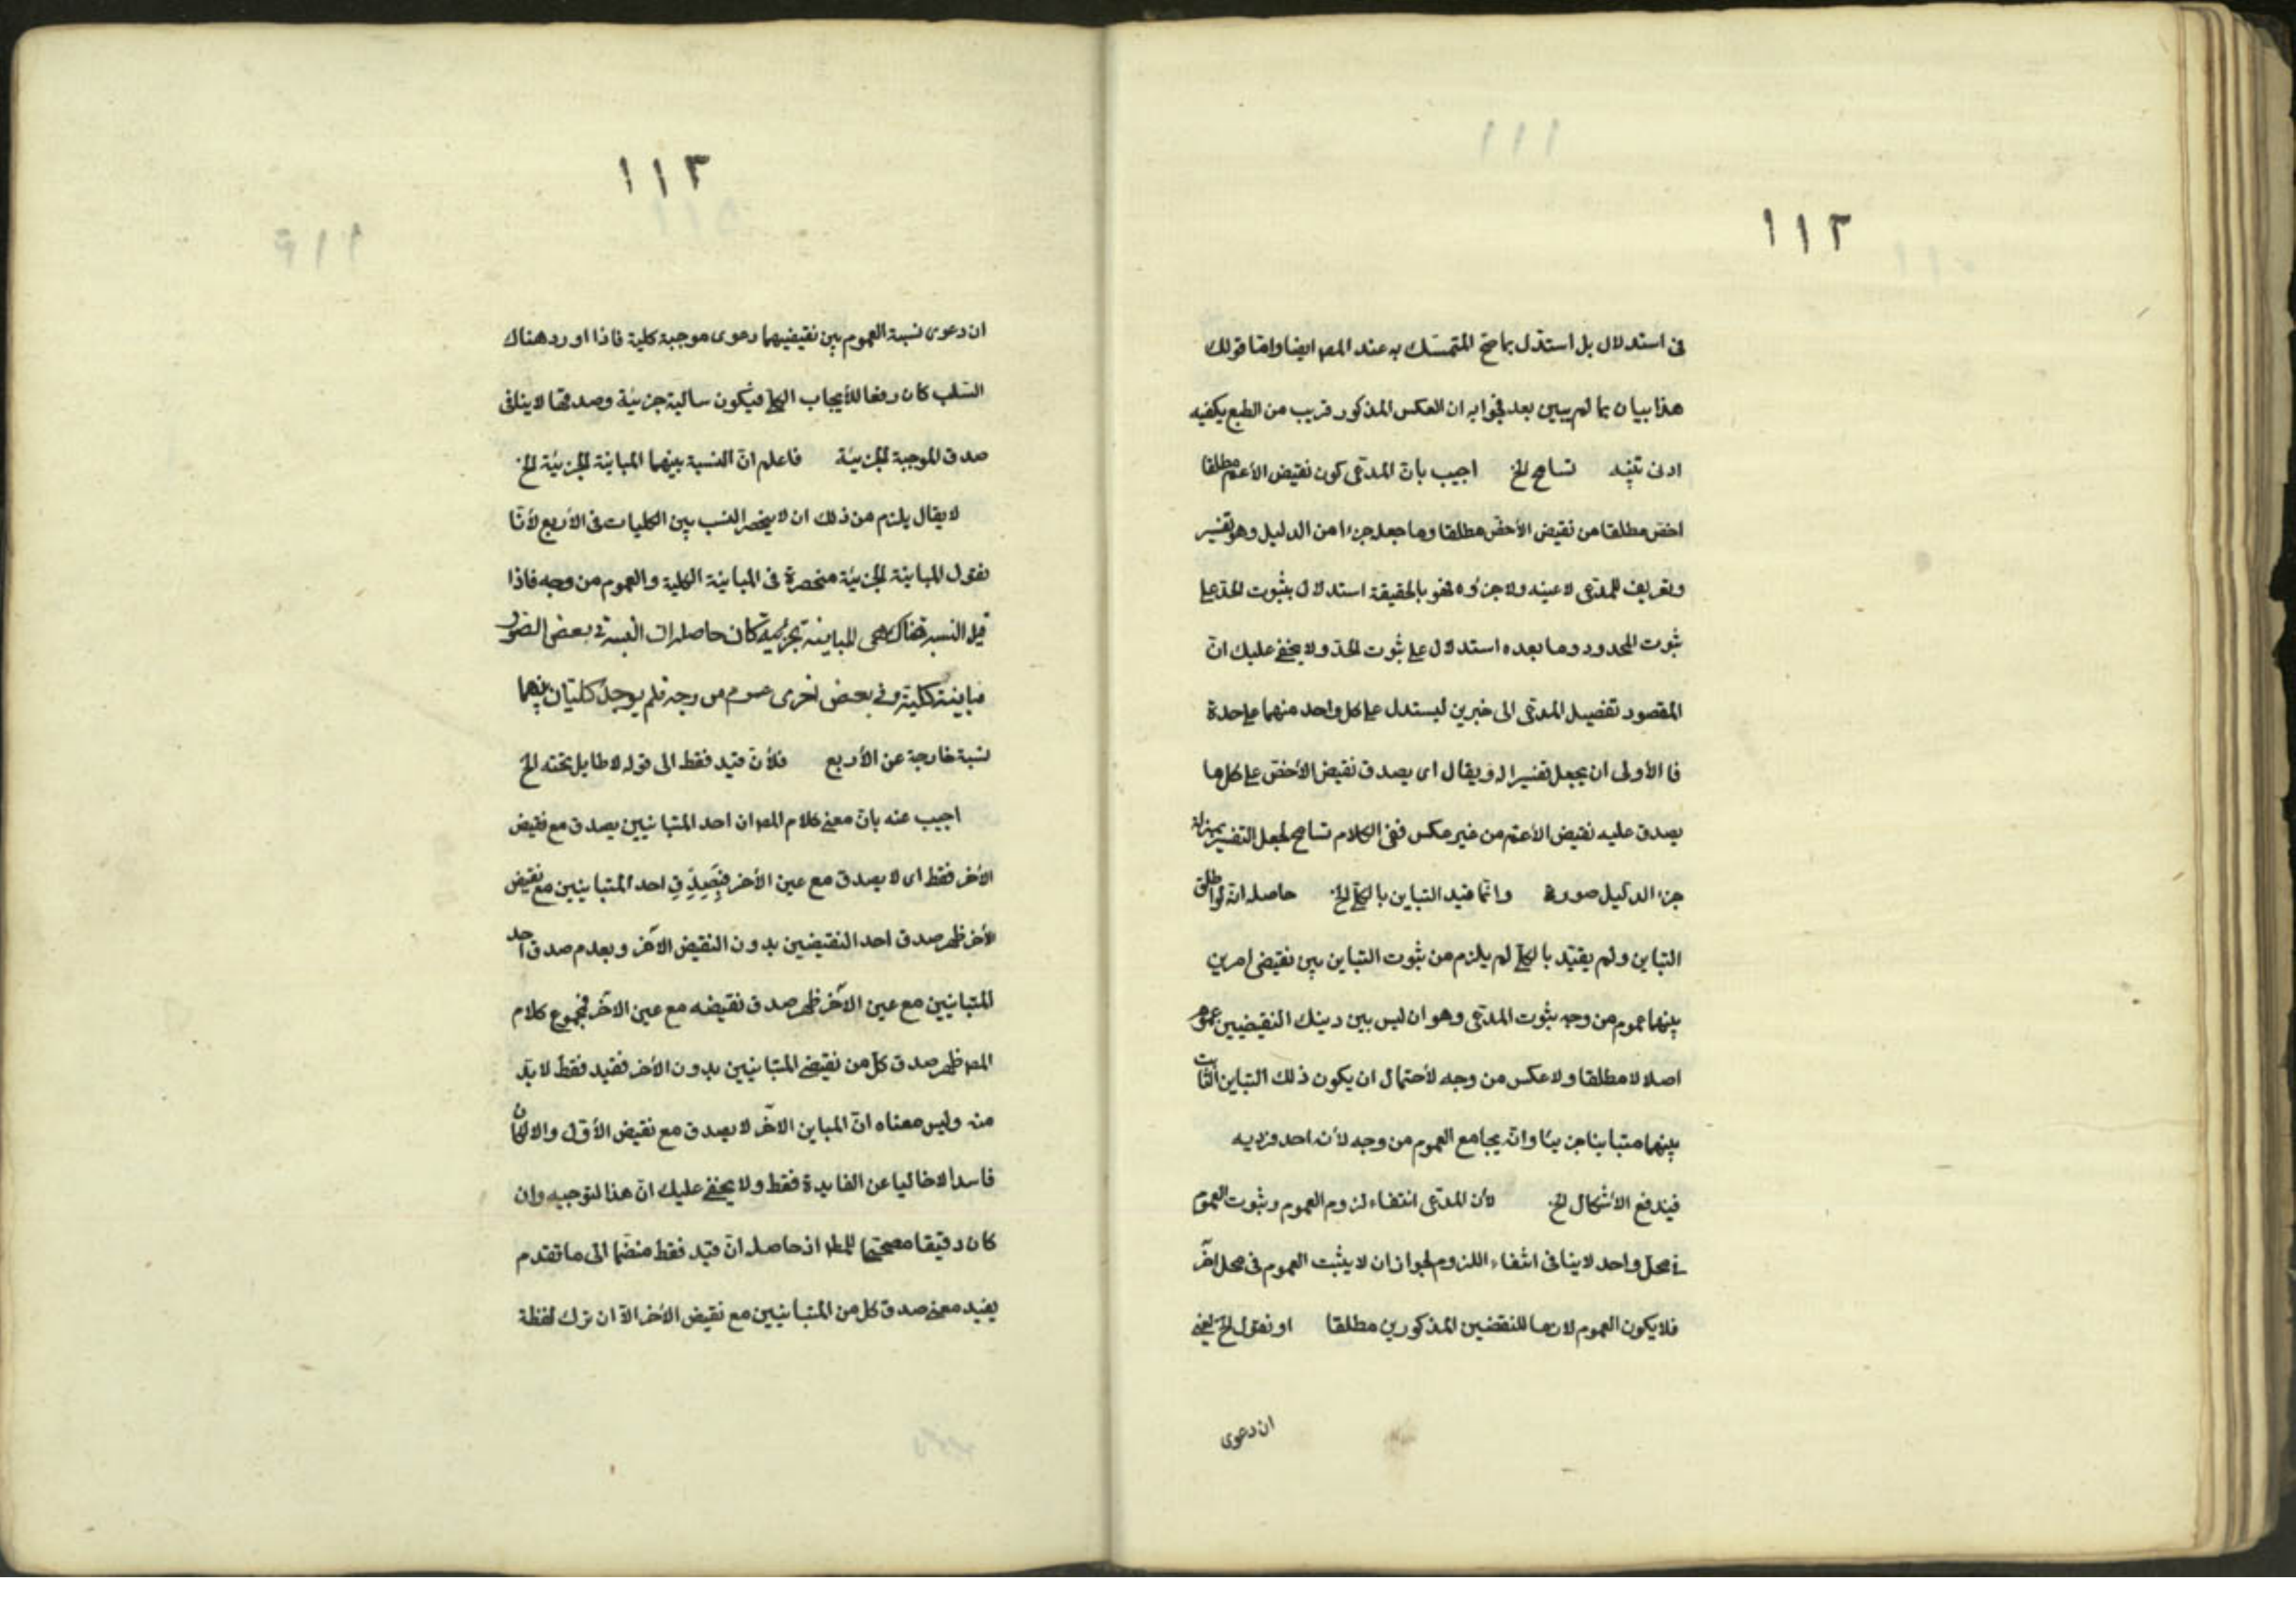 ١١٢
فى استدلال بل استدل بما صح المتمسك به عند المصـ ايضا واما قولك
هذا بيان بما لم يبين بعد فجوابه ان العكس المذكور قريب من الطبع يكفيه
ادنى تنبيه تسامح الخ اجيب بان المدعى كون نقيض الأعم مطلقا
اخص مطلقا من نقيض الأخص مطلقا وما جعل جزءا من الدليل وهو تفسير
وتعريف للمدعى لا عينه ولا جزؤه فهو بالحقيقة استدلال بثبوت الحد على
ثبوت المحدود وما بعده استدلال على ثبوت الحد ولا يخفى عليك ان
المقصود تفصيل المدعى الى خبرين ليستدل على كل واحد منهما على حدة
فا الأولى ان يجعل تفسيرا له ويقال اى يصدق نقيض الأخص على كل ما
يصدق عليه نقيض الأعم من غير عكس ففى الكلام تسامح لجعل التفسير بمنزلة
جزء الدليل صورة وانما قيد التباين بالكلى الخ حاصله انه لو اطلق
التباين ولم يقيد بالكلى لم يلزم من ثبوت التباين بين نقيضى امرين
بينهما عموم من وجه ثبوت المدعى وهو ان ليس بين دينك النقيضيين عموم
اصلا لا مطلقا ولا عكس من وجه لأحتمال ان يكون ذلك التباين الثابت
بينهما متباينا جزئيا وانه يجامع العموم من وجه لأنه احد فرديه
فيندفع الأشكال الخ لأن المدعى انتفاء لزوم العموم وثبوت العموم
فى محل واحد لا ينافى انتفاء اللزوم لجواز ان لا يثبت العموم فى محل آخر
فلا يكون العموم لازما للنقضين المذكورين مطلقا او نقول الخ يعنى
ان دعوى
١١٣
ان دعوى نسبة العموم بين نقيضيهما دعوى موجبة كلية فاذا اورد هناك
السلب كان رفعا للأيجاب الكلى فيكون سالبة جزئية وصدقها لا ينافى
صدق الموجبة الجزئية فاعلم ان النسبة بينهما المباينة الجزئية الخ
لا يقال يلزم من ذلك ان لا ينحصر النسب بين الكليات فى الأربع لأنا
نقول المباينة الجزئية منحصرة فى المباينة الكلية والعموم من وجه فاذا
قيل النسبة هناك هى المباينة الجزئية كان حاصله ان النسبة فى بعض الصور
مباينة كلية وفى بعض اخرى عموم من وجه فلم يوجد كليتان بينهما
نسبة خارجة عن الأربع فلأن قيد فقط الى قوله لا طايل تحته الخ
اجيب عنه بان معنى كلام المصـ ان احد المتباينين يصدق مع نقيض
الأخر فقط اى لا يصدق مع عين الأخر فبصدق احد المتباينين مع نقيض
الأخر ظهر صدق احد النقيضين بدون النقيض الآخر وبعدم صدق احد
المتباينين مع عين الآخر ظهر صدق نقيضه مع عين الآخر فمجموع كلام
المصـ ظهر صدق كل من نقيضى المتباينين بدون الأخر فقيد فقط لا بد
منه وليس معناه ان المباين الآخر لا يصدق مع نقيض الأول والا لكان
فاسدا لا خاليا عن الفايدة فقط ولا يخفى عليك ان هذا التوجيه وان
كان دقيقا مصححا للمطـ اذ حاصله ان قيد فقط منضما الى ما تقدم
يفيد معنى صدق كل من المتباينين مع نقيض الأخر الا ان ترك لفظة